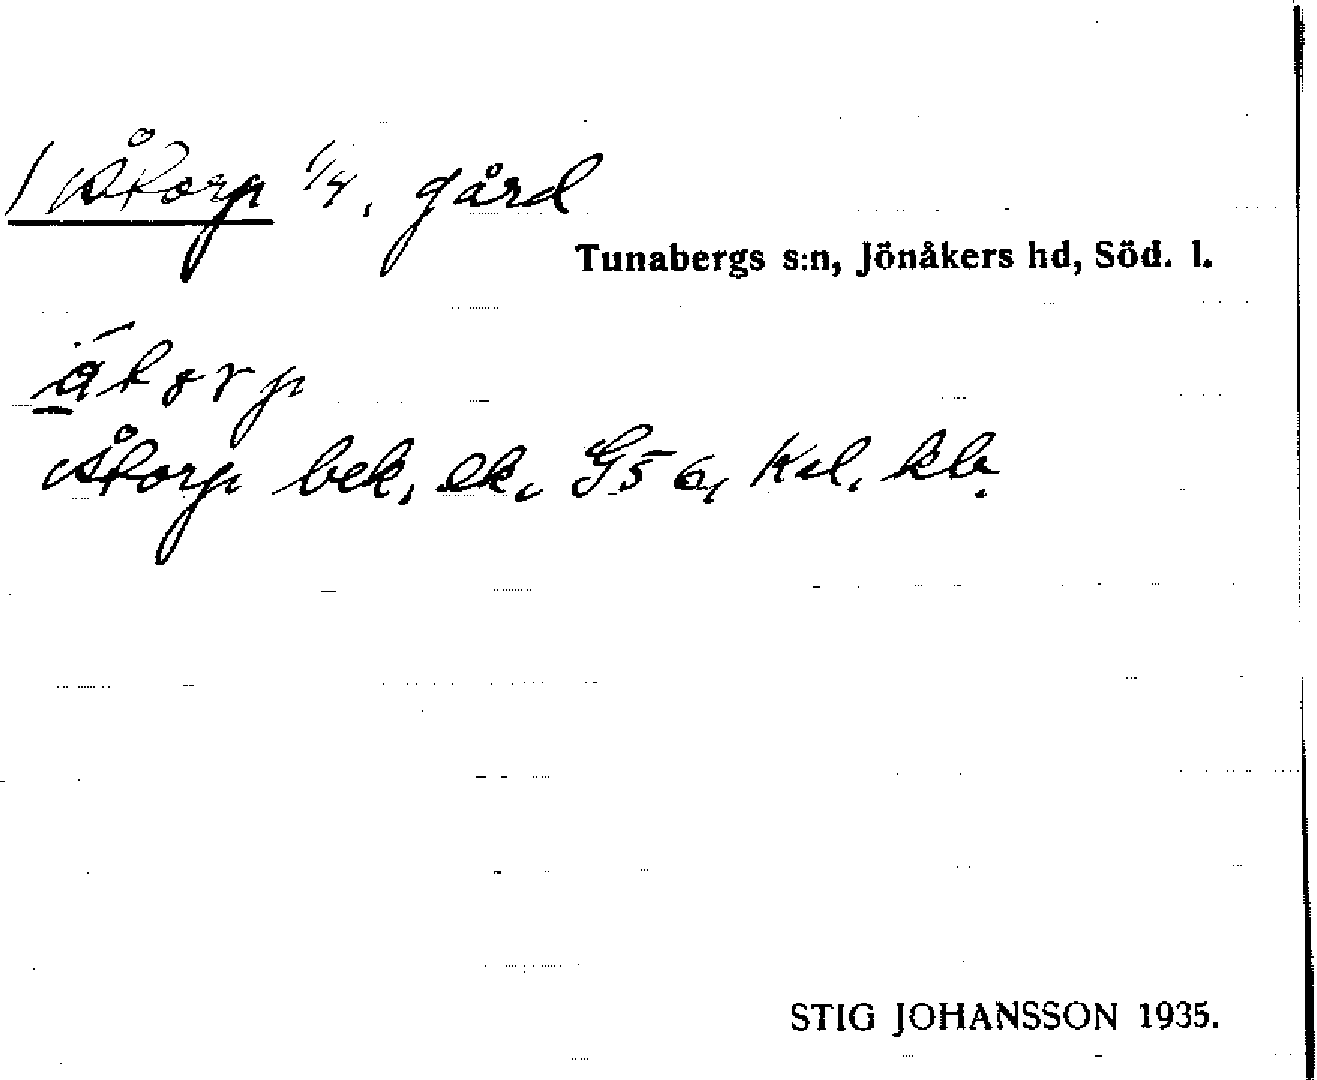 Åtorp 1/4, gård
Tunabergs s:n, Jönåkers hd, Söd. l.
Åtorp bek, ek, G5 6, Kal, kb.
STIG JOHANSSON 1935.